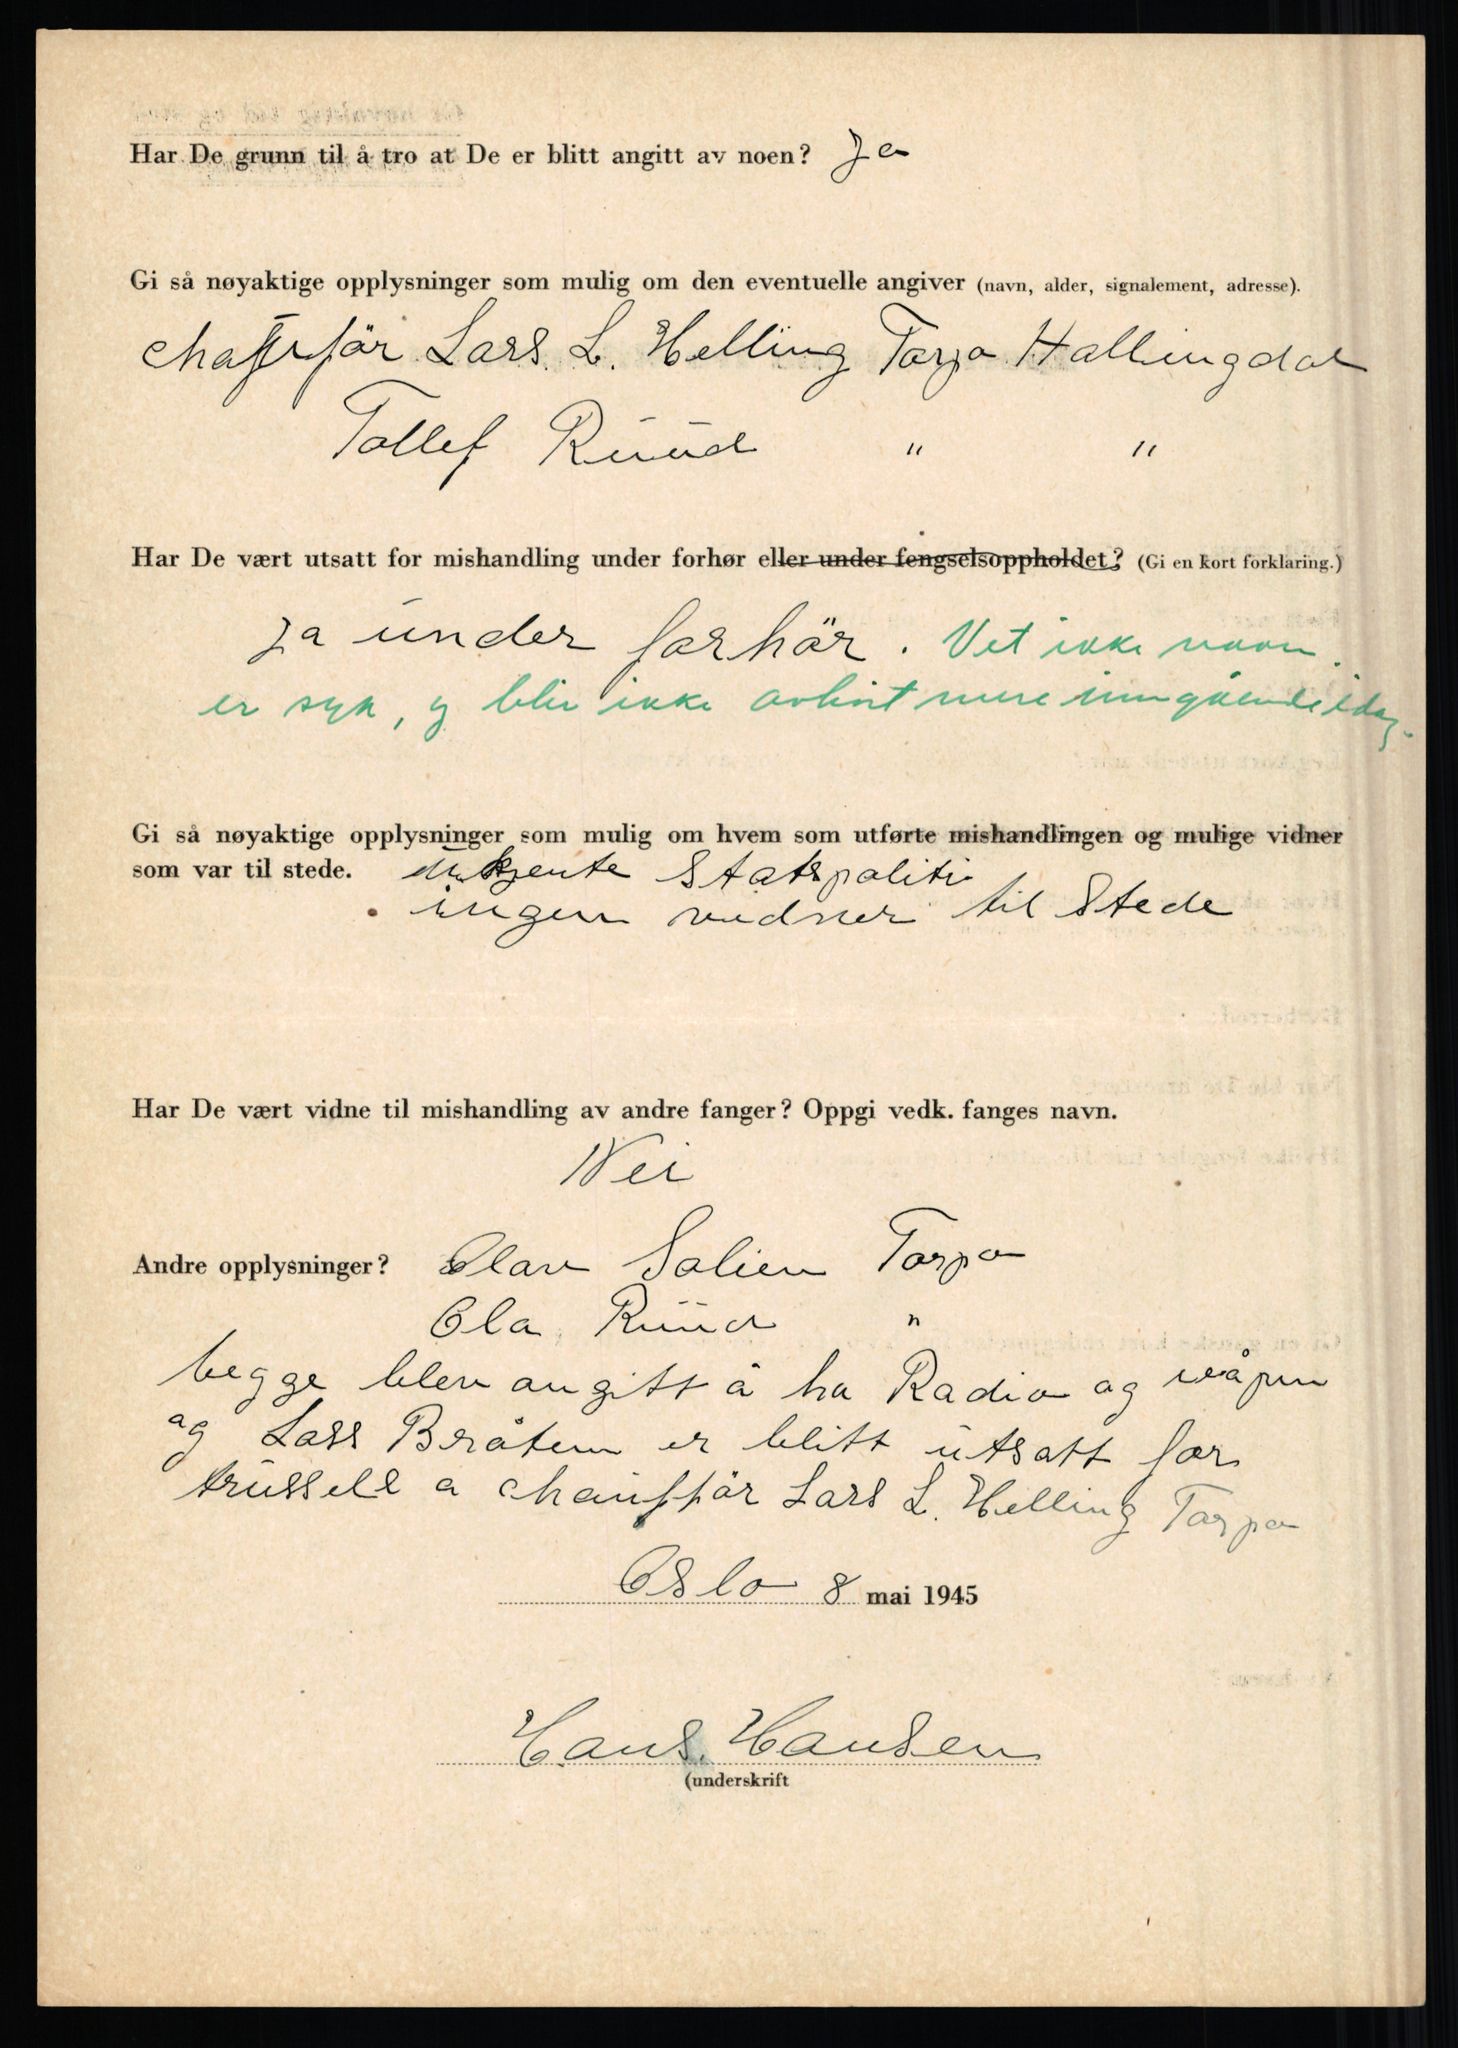 Har De grunn til å tro at De er blitt angitt av noen? Ja
Gi så nøyaktige opplysninger som mulig om den eventuelle angiver (navn, alder, signalement, adresse).
Lars L. Helling Torpo Hallingdal
Tollef Ruud " "
Har De vært utsatt for mishandling under forhør eller under fengselsoppholdet? (Gi en kort forklaring.)
Ja under forhör. Vet ikke navn.
er syk, og blir ikke avhørt mere inngående idag.
Gi så nøyaktige opplysninger som mulig om hvem som utførte mishandlingen og mulige vidner
som var til stede. ukjente Statspoliti
ingen vidner til Stede
Har De vært vidne til mishandling av andre fanger? Oppgi vedk. fanges navn.
Nei
Andre opplysninger? Olav Solien Torpo
Ola Ruud "
begge blev angitt å ha Radio og våpen
og Lars Bråten er blitt utsatt for
trussell a chaufför Lars L. Helling Torpo
Oslo 8 mai 1945
Hans. Hansen
(underskrift